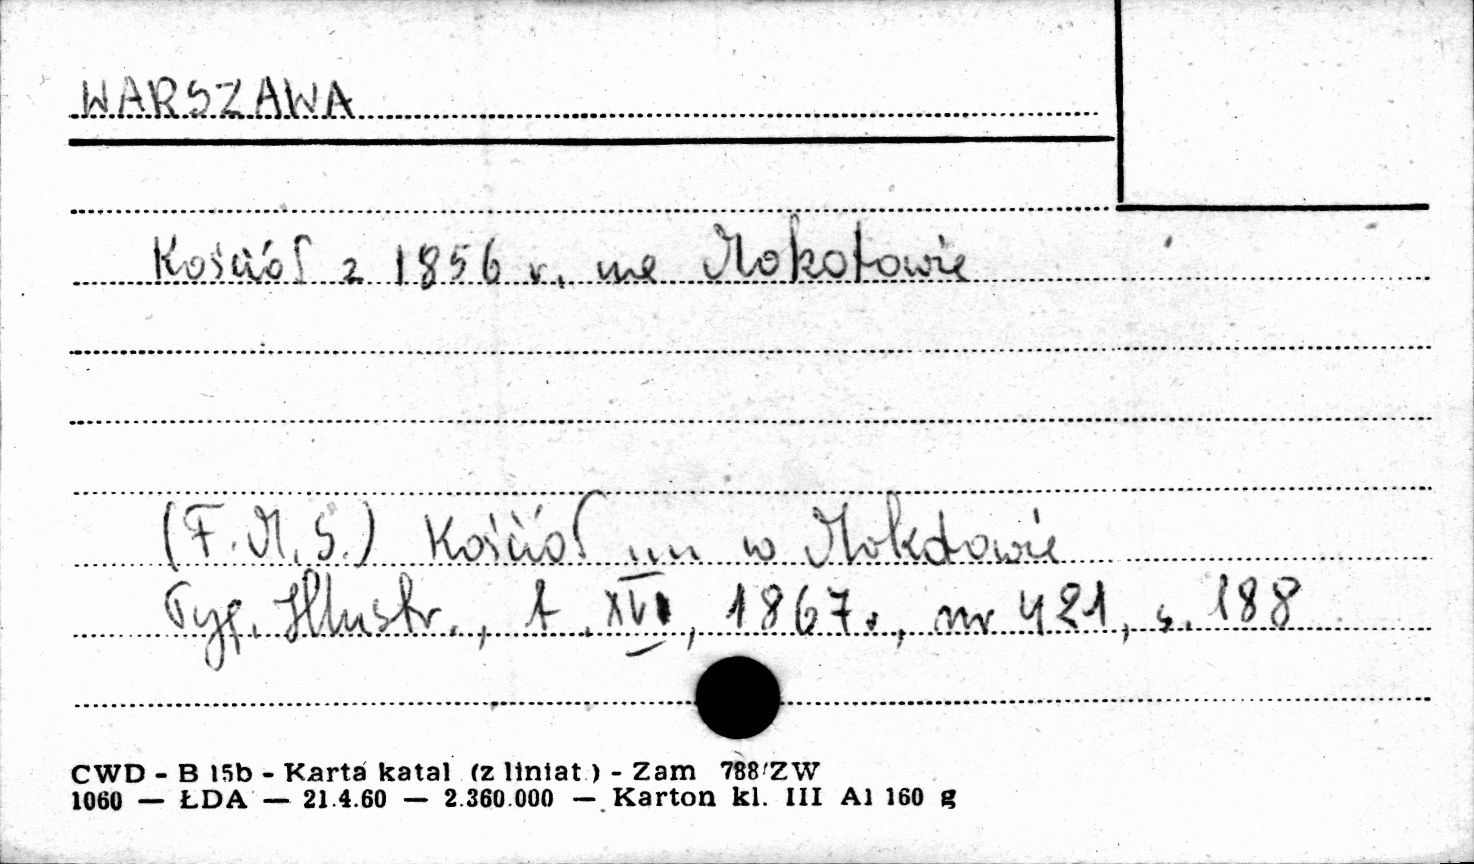 WARSZAWA
Kościół z 1856 r. we Mokotowie
(F.M.S.) Kościół w Mokotowie
Tyg. Illustr., t. XVI, 1867r., nr 421, s. 188
CWD - B 15b - Karta katal (z liniat.) - Zam 788/ZW
1060 — ŁDA — 21.4.60 — 2.360.000 — Karton kl. III A1 160 g